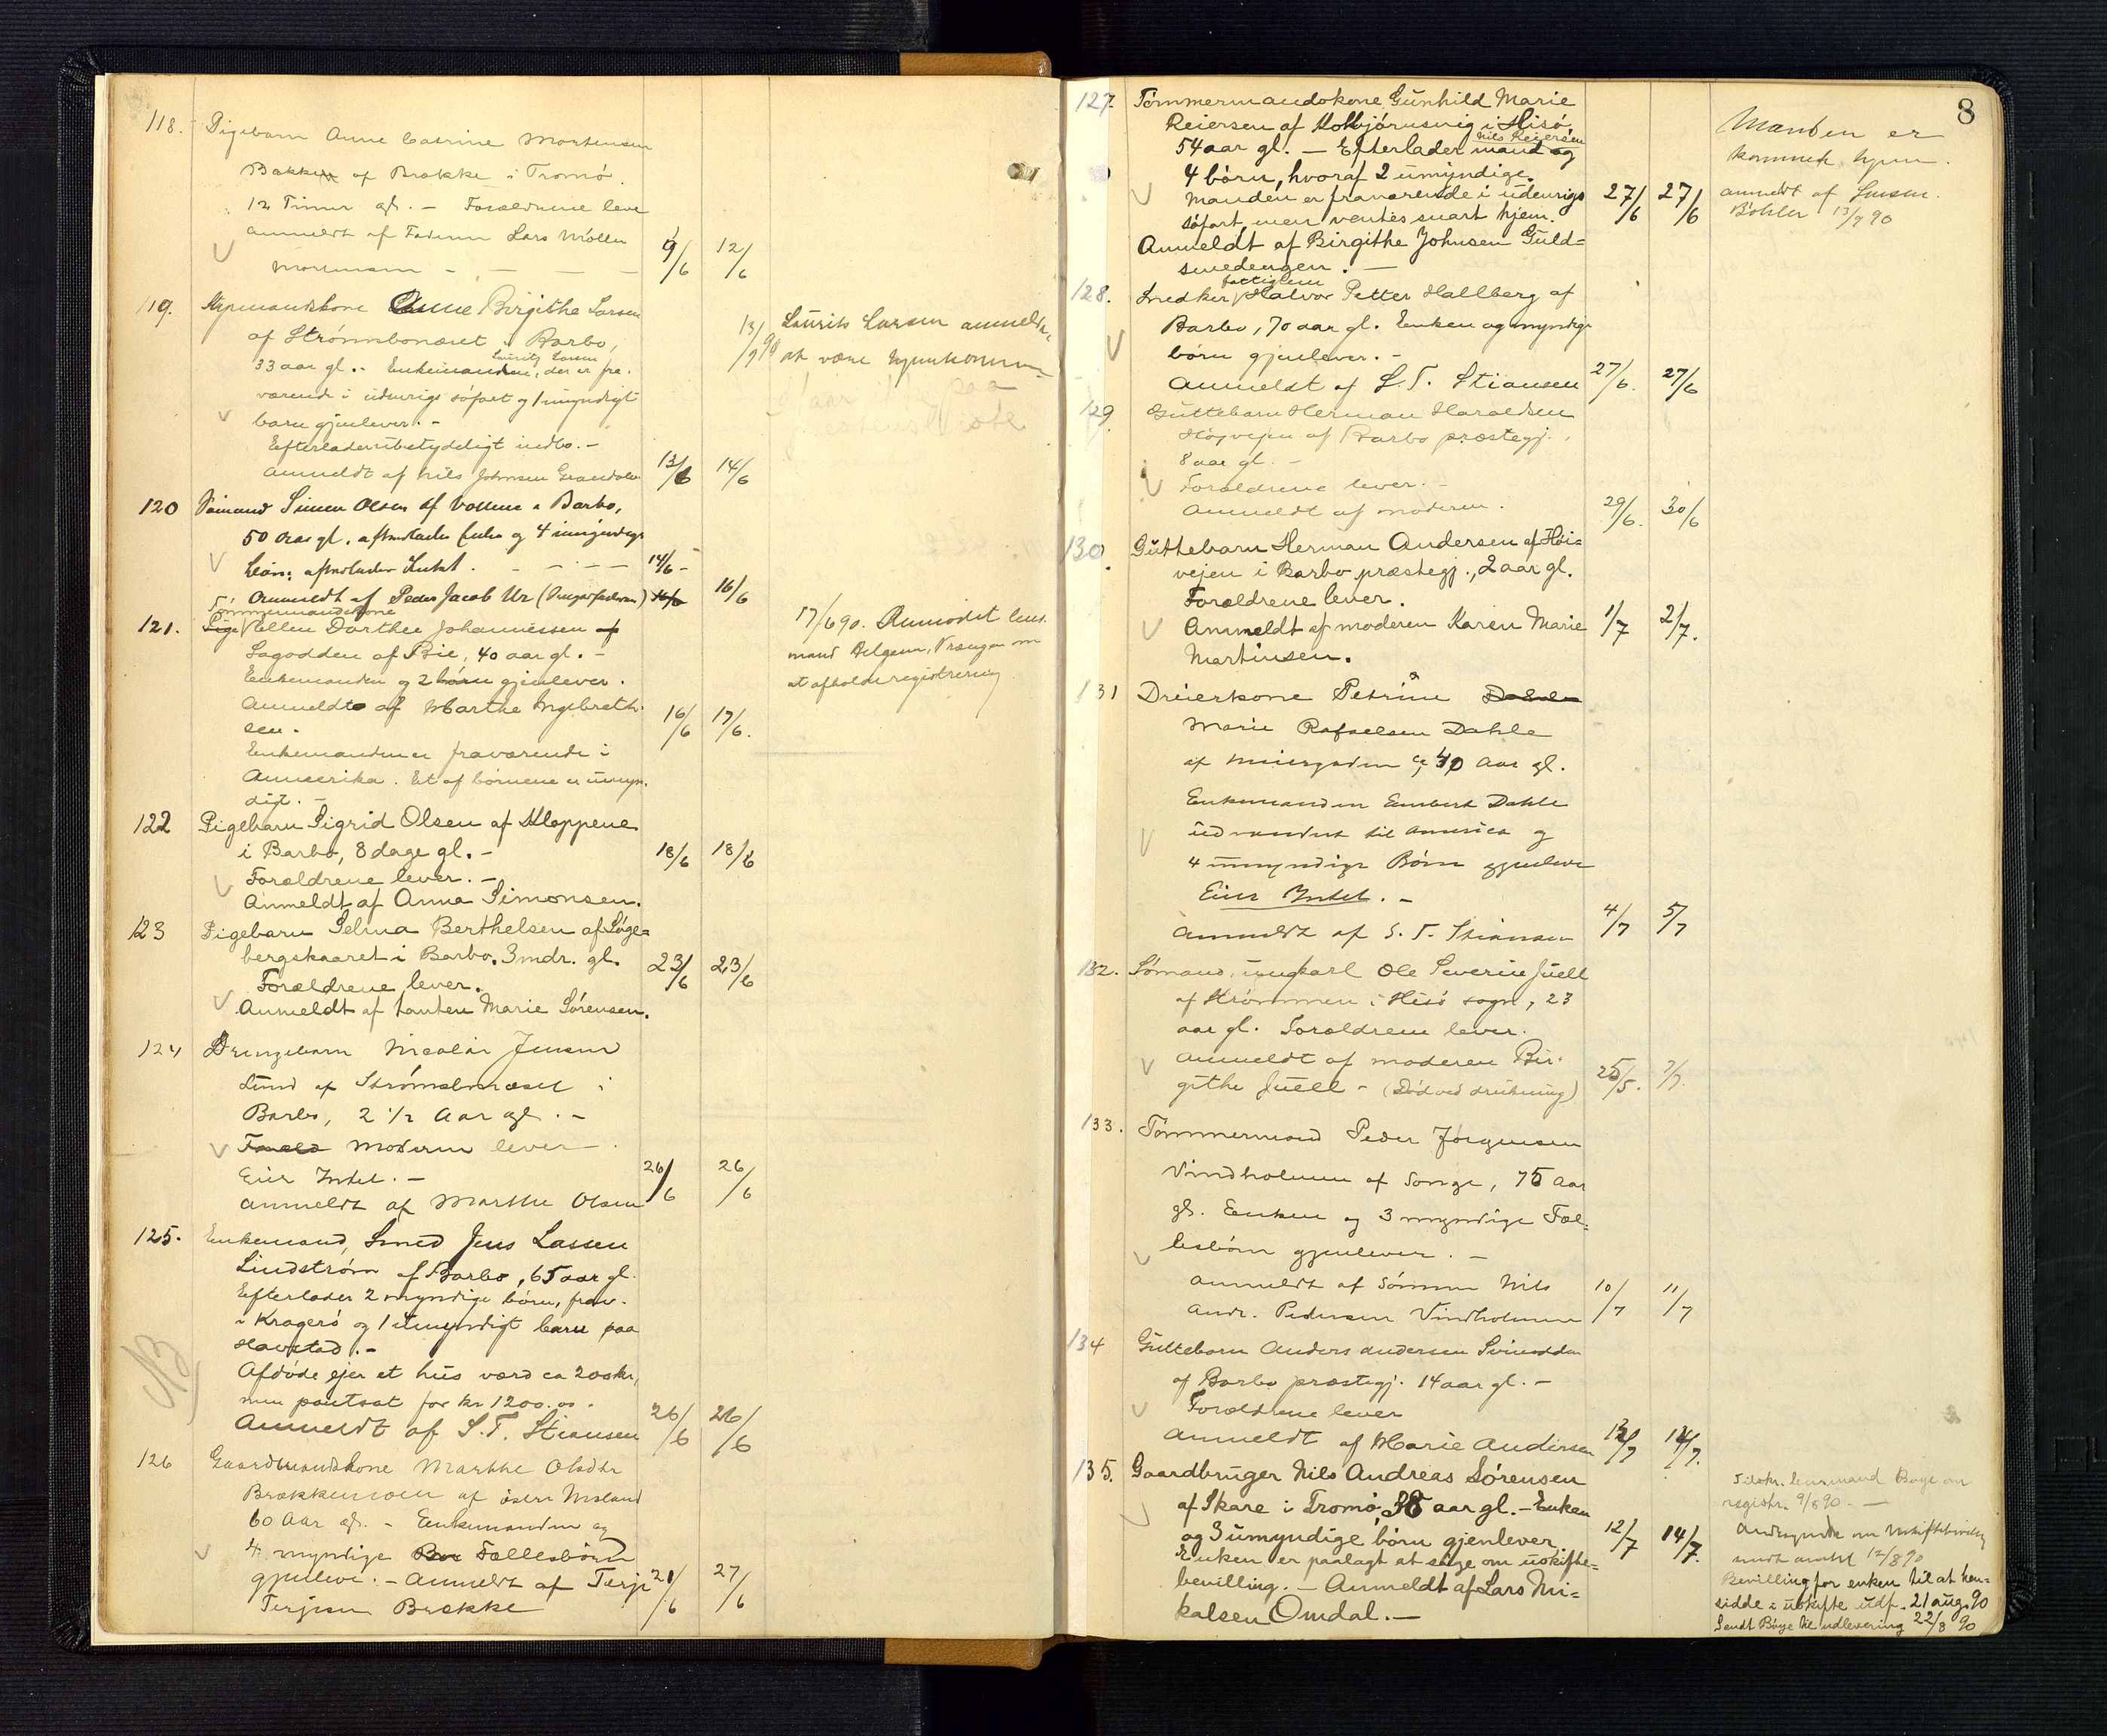 118. Pigebarn Anne Catrine Mortensen
Bakken af Brække i Tromø.
12 Timer gl. – Forældrene leve
Anmeldt af Faderen Lars Møller
Mortensen – – – – 9/6 12/6
119. Styrmandskone Anne Birgithe Larsen
af Strømsbonæset i Barbo,
Lauritz Larsen
33 aar gl. – Enkemanden, der er fra-
værende i udenrigs søfart og 1 umyndigt
barn gjenlever. –
Efterlader ubetydeligt indbo. –
Anmeldt af Nils Johnsen 13/6 14/6
13/9 90 Laurits Larsen anmeldte
at være hjemkommen
120 Sømand Simon Olsen af Vollene i Barbo,
50 Aar gl. efterlader Enke og 4 umyndige
Børn; efterlader Intet. – – – – 14/6 –
Anmeldt af Peder Jacob Ur 14/6 16/6
Tømmermandskone
121. Pige Ellen Dorthee Johannessen af
Lagodden af Bie, 40 aar gl. –
Enkemanden og 2 børn gjenlever.
Anmeldt af Marthe Ingebreth-
sen. 16/6 17/6.
Enkemanden er fraværende i
Ammerika. Et af børnene er umyn-
digt. –
17/6 90. Anmodet lens-
mand Helgesen, Vrængen om
at afholde registrering
122 Pigebarn Sigrid Olsen af Kloppene
i Barbo, 8 dage gl. – 18/6 18/6
Forældrene lever. –
Anmeldt af Anna Simonsen.
123 Pigebarn Selma Berthelsen af Løge=
bergskaaret i Barbo. 3 mdr. gl. 23/6 23/6
Forældrene lever.
Anmeldt af tanten Marie Sørensen.
124 Drengebarn Nicolai Jensen
Lund af Strømsbunæset i
Barbo, 2 1/2 Aar gl. –
Foræld Moderen lever –
Eier Intet. – 26/6 26/6
Anmeldt af Marthe Olsen
125. Enkemand, Smed Jens Lassen
Lindstrøm af Barbo, 65 aar gl.
Efterlader 2 myndige børn, frav.
i Kragerø og 1 umyndigt barn paa
Havstad. –
NB
Afdøde ejer et hus værd ca 200 kr,
men pantsat for kr 1200.00.
Anmeldt af S. T. Stiansen 26/6 26/6
126 Gaardmandskone Marthe Olsdtr
Brækkemoen af østre Moland
60 Aar gl. – Enkemanden og
4 myndige Bør Fællesbørn
gjenleve. – Anmeldt af Terje 21/6 27/6
Terjesen Brække
8
127. Tømmermandskone Gunhild Marie
Reiersen af Kolbjørnsvig i Hisø,
Nils Reiersen
54 aar gl. – Efterlader mand og
4 børn, hvoraf 2 umyndige.
Manden er fraværende i udenrigs 27/6 27/6
søfart, men ventes snart hjem.
Anmeldt af Birgithe Johnsen Guld=
smedengen. –
Manden er
kommet hjem.
anmeldt af Lensm.
Bøhler 13/7 90
fattiglem
128. Snedker Halvor Petter Hallberg af
Barbo, 70 aar gl. Enken og myndige
børn gjenlever. –
Anmeldt af S. T. Stiansen 27/6. 27/6
129 Guttebarn Herman Haraldsen
Høgvejen af Barbo præstegj.,
8 aar gl. –
Forældrene lever. –
Anmeldt af moderen. 29/6. 30/6
130. Guttebarn Herman Andersen af Høi=
vejen i Barbo præstegj., 2 aar gl.
Forældrene lever.
Anmeldt af moderen Karen Marie 1/7 2/7.
Martinsen.
131 Dreierkone Petrine Dahle
Marie Rafaelsen Dahle
af ca 40 Aar gl.
Enkemanden Dahle
udvandret til America og
4 umyndige Børn gjenleve
Eier Intet. –
Anmeldt af S. T. Stiansen 4/7 5/7
132. Sømand, ungkarl Ole Severin Juell
af Strømmen i Hisø sogn, 23
aar gl. Forældrene lever.
Anmeldt af moderen Bir-
githe Juell – (Død ved drukning) 25/5.
133. Tømmermand Peder Jørgensen
Vindholmen af Songe, 75 Aar
gl. Enken og 3 myndige Fæl-
lesbørn gjenlever. –
Anmeldt af Sønnen Nils
Andr. Pedersen Vindholmen 10/7 11/7
134 Guttebarn Anders Andersen Svinodden
af Barbo præstegj. 14 aar gl. –
Forældrene lever
Anmeldt af Marie Andersen 12/7 14/7.
135. Gaardbruger Nils Andreas Sørensen
af Skare i Tromø, 38 aar gl. – Enken
og 3 umyndige børn gjenlever. 12/7 14/7.
Enken er paalagt at søge om uskifte=
bevilling. – Anmeldt af Lars Mi=
kalsen Omdal. –
Tilskr. lensmand Bøye om
registr. 9/8 90. –
Andragende om Uskiftebevilling
12/8 90
Bevilling for enken til at hen=
sidde i uskifte udf. 21 aug. 90
Sendt Bøye til udlevering 22/8 90